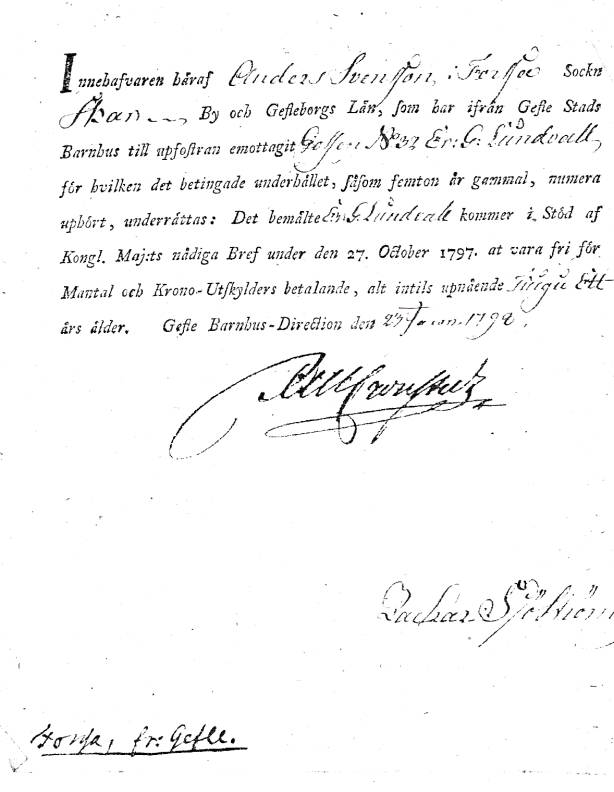 Innehafvaren häraf Anders Svensson, i Forssa Sockn
Skarn By och Gefleborgs Län, som har ifrån Gefle Stads
Barnhus till upfostran emottagit Gossen N:o 32 Er: G: Lundvall,
för hvilken det betingade underhållet, såsom femton år gammal, numera
uphört, underrättas: Det bemälte Er: G: Lundvall kommer i Stöd af
Kongl. Maj:ts nådiga Bref under den 27. October 1797. at vara fri för
Mantal och Krono-Utskylders betalande, alt intils upnående Tiugu Ett
års ålder. Gefle Barnhus-Direction den 23 Janu. 1798.
Cronstedt
Zachar. Sjöström
Forssa, fr: Gefle.